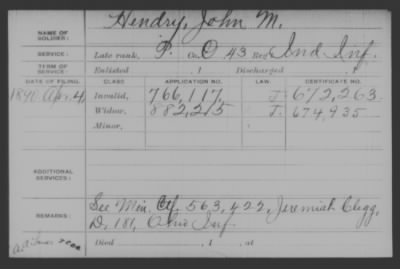 NAME OF SOLDIER: Hendry, John M.
SERVICE: Late rank, P. Co. O 43 Reg't Ind Inf.
TERM OF SERVICE: Enlisted , 1 Discharged , 1
DATE OF FILING. CLASS. APPLICATION NO. LAW. CERTIFICATE NO.
1890 Apr. 4, Invalid, 766,117, J. 672,263.
Widow, 882,215 J. 674,935
Minor,
ADDITIONAL SERVICES:
REMARKS: See Min. Ctf. 563,422, Jeremiah Clegg,
D, 181, Ohio Inf.
Died , 1 , at